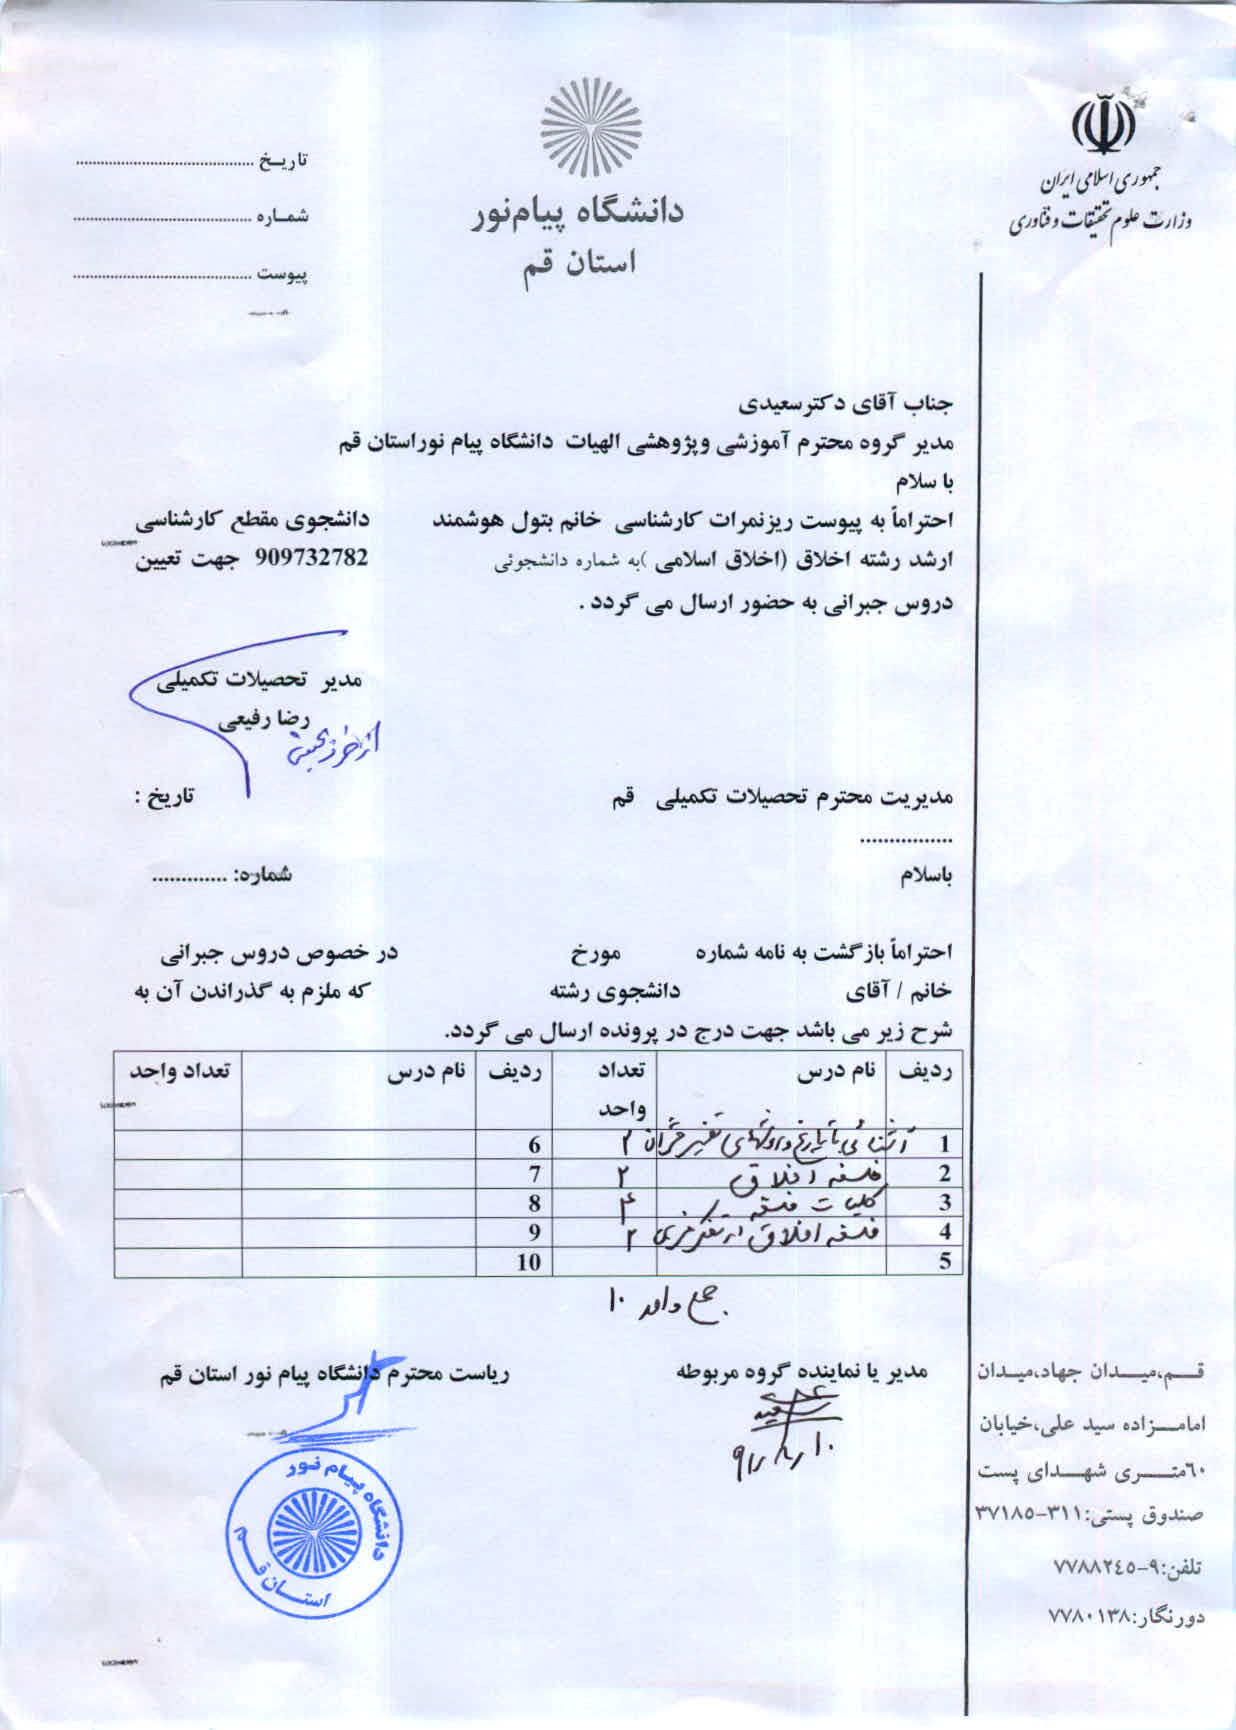 جمهوری اسلامی ایران
وزارت علوم تحقیقات و فناوری
دانشگاه پیام‌نور
استان قم
تاریـخ ............................................
شمـاره ............................................
پیوست ............................................
جناب آقای دکترسعیدی
مدیر گروه محترم آموزشی وپژوهشی الهیات دانشگاه پیام نوراستان قم
با سلام
احتراماً به پیوست ریزنمرات کارشناسی خانم بتول هوشمند دانشجوی مقطع کارشناسی
ارشد رشته اخلاق (اخلاق اسلامی )به شماره دانشجوئی 909732782 جهت تعیین
دروس جبرانی به حضور ارسال می گردد .
مدیر تحصیلات تکمیلی
رضا رفیعی
از طرف
مدیریت محترم تحصیلات تکمیلی قم تاریخ :
................
باسلام شماره: .............
احتراماً بازگشت به نامه شماره مورخ در خصوص دروس جبرانی
خانم / آقای دانشجوی رشته که ملزم به گذراندن آن به
شرح زیر می باشد جهت درج در پرونده ارسال می گردد.
ردیف نام درس تعداد واحد ردیف نام درس تعداد واحد
1 آشنائی با تاریخ و روشهای تفسیر قرآن ۲ 6
2 فلسفه اخلاق ۲ 7
3 کلیات فلسفه ۴ 8
4 فلسفه اخلاق در تفکر غربی ۲ 9
5 10
جمع واحد ۱۰
مدیر یا نماینده گروه مربوطه ریاست محترم دانشگاه پیام نور استان قم
سعیدی
۹۱٫۸٫۱۰
دانشگاه پیام نور
استان قم
قـم،میـدان جهاد،میـدان
امامـزاده سید علی،خیابان
۶۰متـری شهـدای پست
صندوق پستی:۳۱۱-۳۷۱۸۵
تلفن:۹-۷۷۸۸۲٤٥
دورنگار:۷۷۸۰۱۳۸